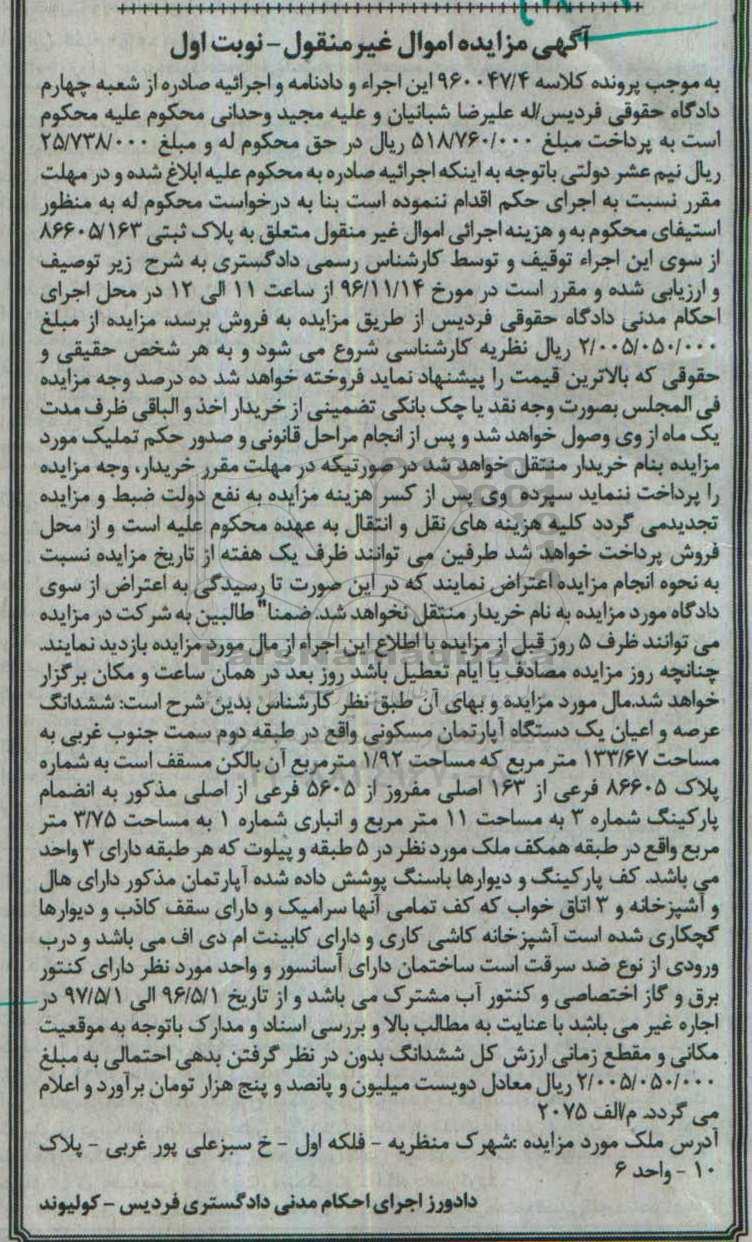 آگهی مزایده اموال غیر منقول - نوبت اول
به موجب پرونده کلاسه ۹۶۰۰۴۷/۴ این اجراء و دادنامه و اجرائیه صادره از شعبه چهارم
دادگاه حقوقی فردیس/له علیرضا شبانیان و علیه مجید وحدانی محکوم علیه محکوم
است به پرداخت مبلغ ۵۱۸/۷۶۰/۰۰۰ ریال در حق محکوم له و مبلغ ۲۵/۷۳۸/۰۰۰
ریال نیم عشر دولتی باتوجه به اینکه اجرائیه صادره به محکوم علیه ابلاغ شده و در مهلت
مقرر نسبت به اجرای حکم اقدام ننموده است بنا به درخواست محکوم له به منظور
استیفای محکوم به و هزینه اجرائی اموال غیر منقول متعلق به پلاک ثبتی ۸۶۶۰۵/۱۶۳
از سوی این اجراء توقیف و توسط کارشناس رسمی دادگستری به شرح زیر توصیف
و ارزیابی شده و مقرر است در مورخ ۹۶/۱۱/۱۴ از ساعت ۱۱ الی ۱۲ در محل اجرای
احکام مدنی دادگاه حقوقی فردیس از طریق مزایده به فروش برسد، مزایده از مبلغ
۲/۰۰۵/۰۵۰/۰۰۰ ریال نظریه کارشناسی شروع می شود و به هر شخص حقیقی و
حقوقی که بالاترین قیمت را پیشنهاد نماید فروخته خواهد شد ده درصد وجه مزایده
فی المجلس بصورت وجه نقد یا چک بانکی تضمینی از خریدار اخذ و الباقی ظرف مدت
یک ماه از وی وصول خواهد شد و پس از انجام مراحل قانونی و صدور حکم تملیک مورد
مزایده بنام خریدار منتقل خواهد شد در صورتیکه در مهلت مقرر خریدار، وجه مزایده
را پرداخت ننماید سپرده وی پس از کسر هزینه مزایده به نفع دولت ضبط و مزایده
تجدیدمی گردد کلیه هزینه های نقل و انتقال به عهده محکوم علیه است و از محل
فروش پرداخت خواهد شد طرفین می توانند ظرف یک هفته از تاریخ مزایده نسبت
به نحوه انجام مزایده اعتراض نمایند که در این صورت تا رسیدگی به اعتراض از سوی
دادگاه مورد مزایده به نام خریدار منتقل نخواهد شد. ضمنا" طالبین به شرکت در مزایده
می توانند ظرف ۵ روز قبل از مزایده با اطلاع این اجراء از مال مورد مزایده بازدید نمایند.
چنانچه روز مزایده مصادف با ایام تعطیل باشد روز بعد در همان ساعت و مکان برگزار
خواهد شد.مال مورد مزایده و بهای آن طبق نظر کارشناس بدین شرح است: ششدانگ
عرصه و اعیان یک دستگاه آپارتمان مسکونی واقع در طبقه دوم سمت جنوب غربی به
مساحت ۱۳۳/۶۷ متر مربع که مساحت ۱/۹۲ مترمربع آن بالکن مسقف است به شماره
پلاک ۸۶۶۰۵ فرعی از ۱۶۳ اصلی مفروز از ۵۶۰۵ فرعی از اصلی مذکور به انضمام
پارکینگ شماره ۳ به مساحت ۱۱ متر مربع و انباری شماره ۱ به مساحت ۳/۷۵ متر
مربع واقع در طبقه همکف ملک مورد نظر در ۵ طبقه و پیلوت که هر طبقه دارای ۳ واحد
می باشد. کف پارکینگ و دیوارها باسنگ پوشش داده شده آپارتمان مذکور دارای هال
و آشپزخانه و ۳ اتاق خواب که کف تمامی آنها سرامیک و دارای سقف کاذب و دیوارها
گچکاری شده است آشپزخانه کاشی کاری و دارای کابینت ام دی اف می باشد و درب
ورودی از نوع ضد سرقت است ساختمان دارای آسانسور و واحد مورد نظر دارای کنتور
برق و گاز اختصاصی و کنتور آب مشترک می باشد و از تاریخ ۹۶/۵/۱ الی ۹۷/۵/۱ در
اجاره غیر می باشد با عنایت به مطالب بالا و بررسی اسناد و مدارک باتوجه به موقعیت
مکانی و مقطع زمانی ارزش کل ششدانگ بدون در نظر گرفتن بدهی احتمالی به مبلغ
۲/۰۰۵/۰۵۰/۰۰۰ ریال معادل دویست میلیون و پانصد و پنج هزار تومان برآورد و اعلام
می گردد. م/الف ۲۰۷۵
آدرس ملک مورد مزایده :شهرک منظریه - فلکه اول - خ سبزعلی پور غربی - پلاک
۱۰ - واحد ۶
دادورز اجرای احکام مدنی دادگستری فردیس - کولیوند